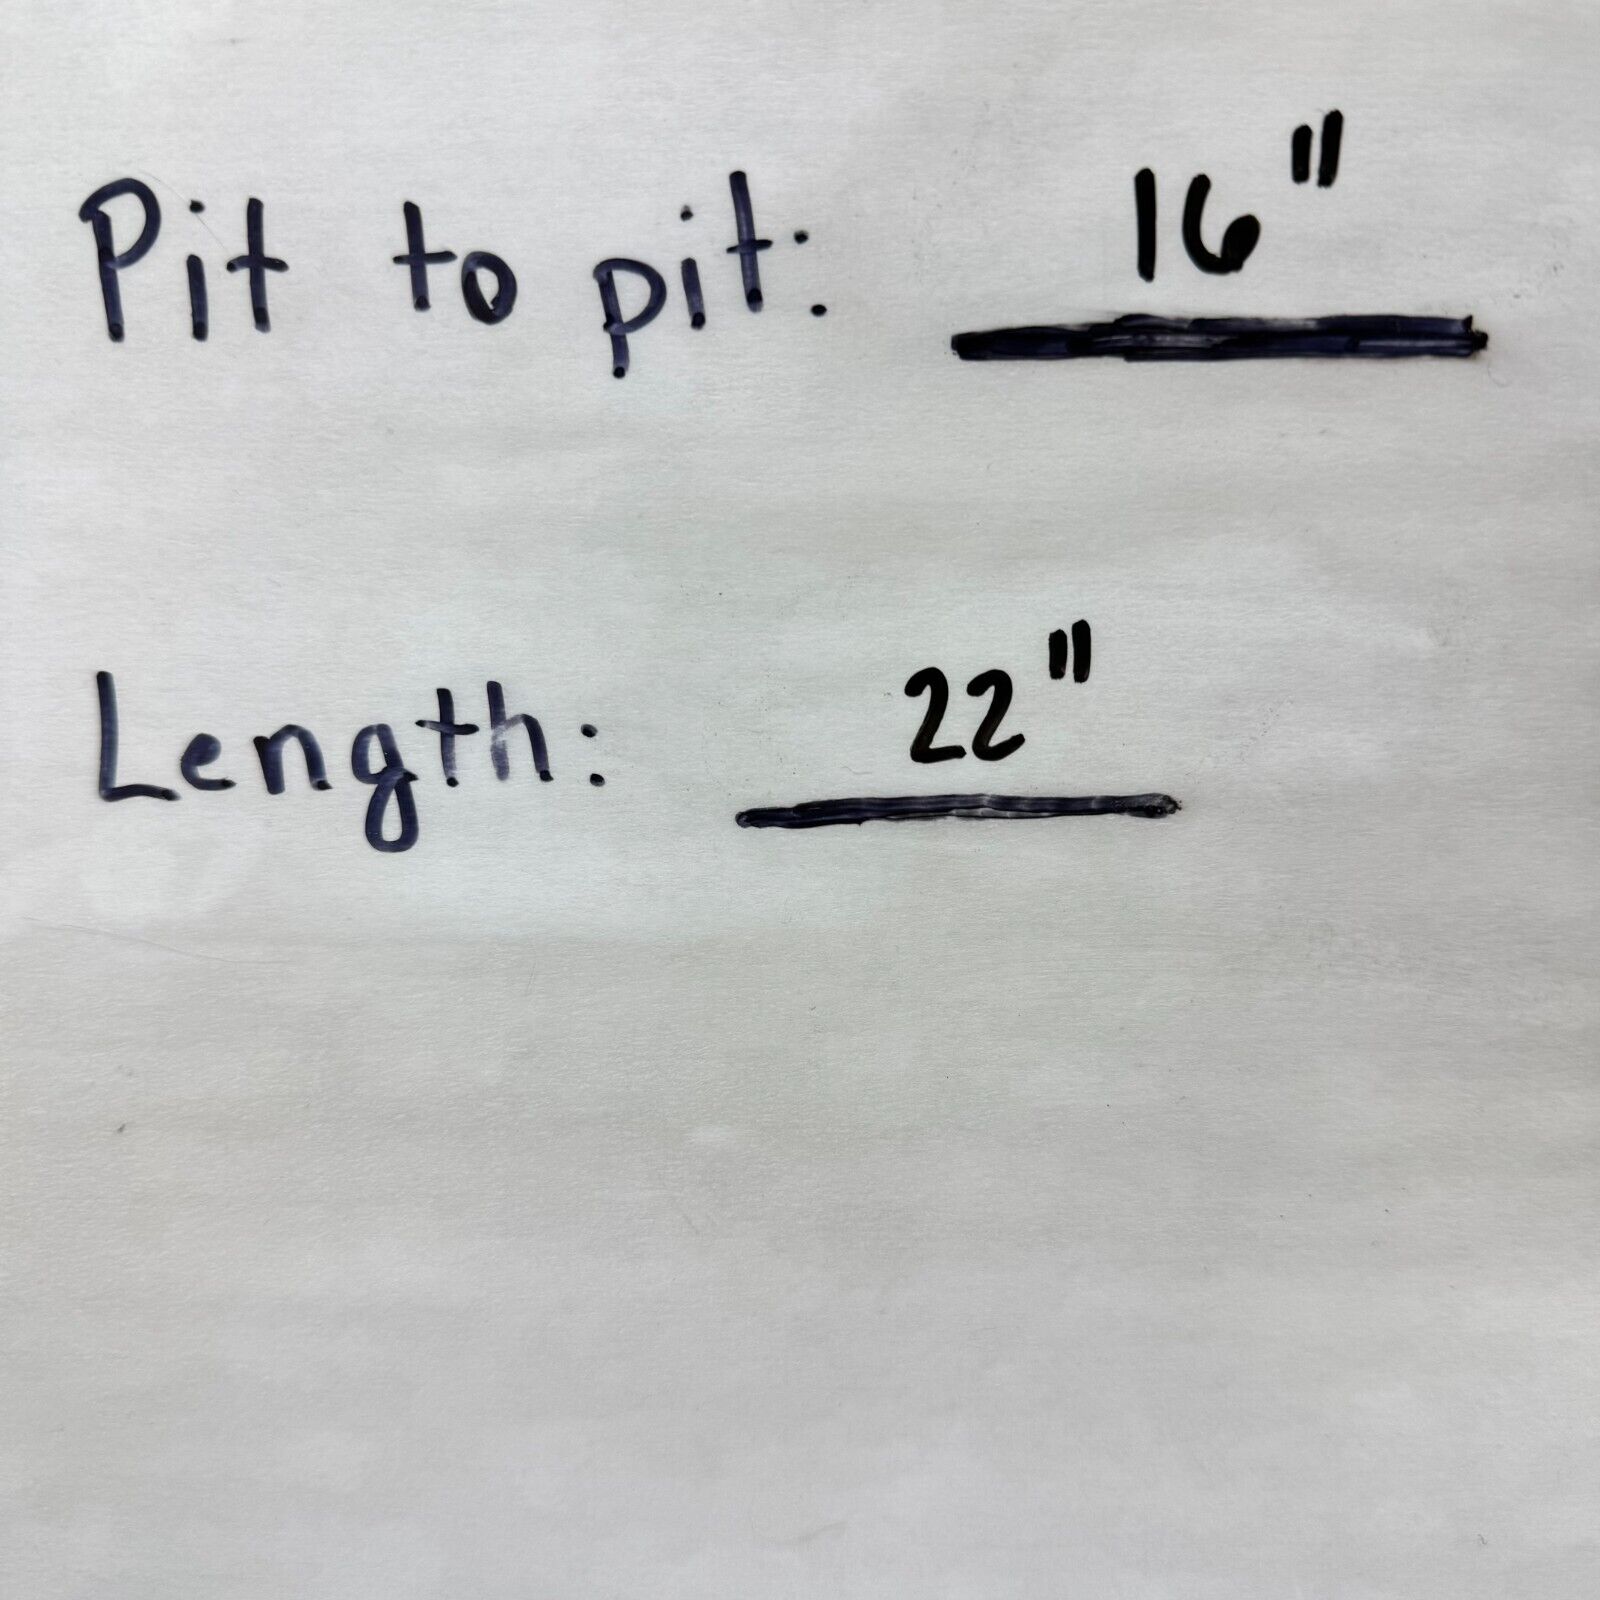 Pit to pit: 16"
Length: 22"